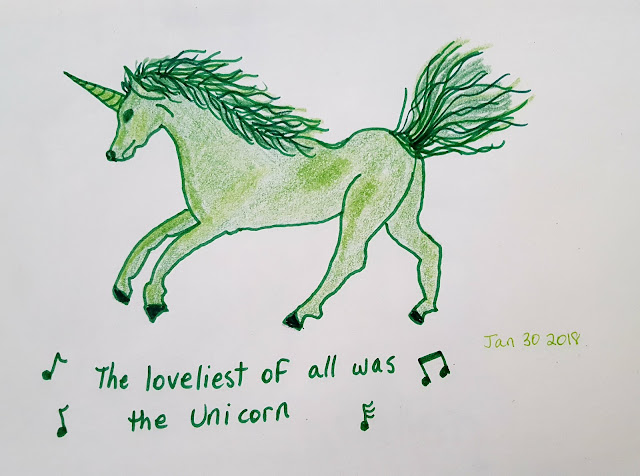 Jan 30 2018
The loveliest of all was
the Unicorn